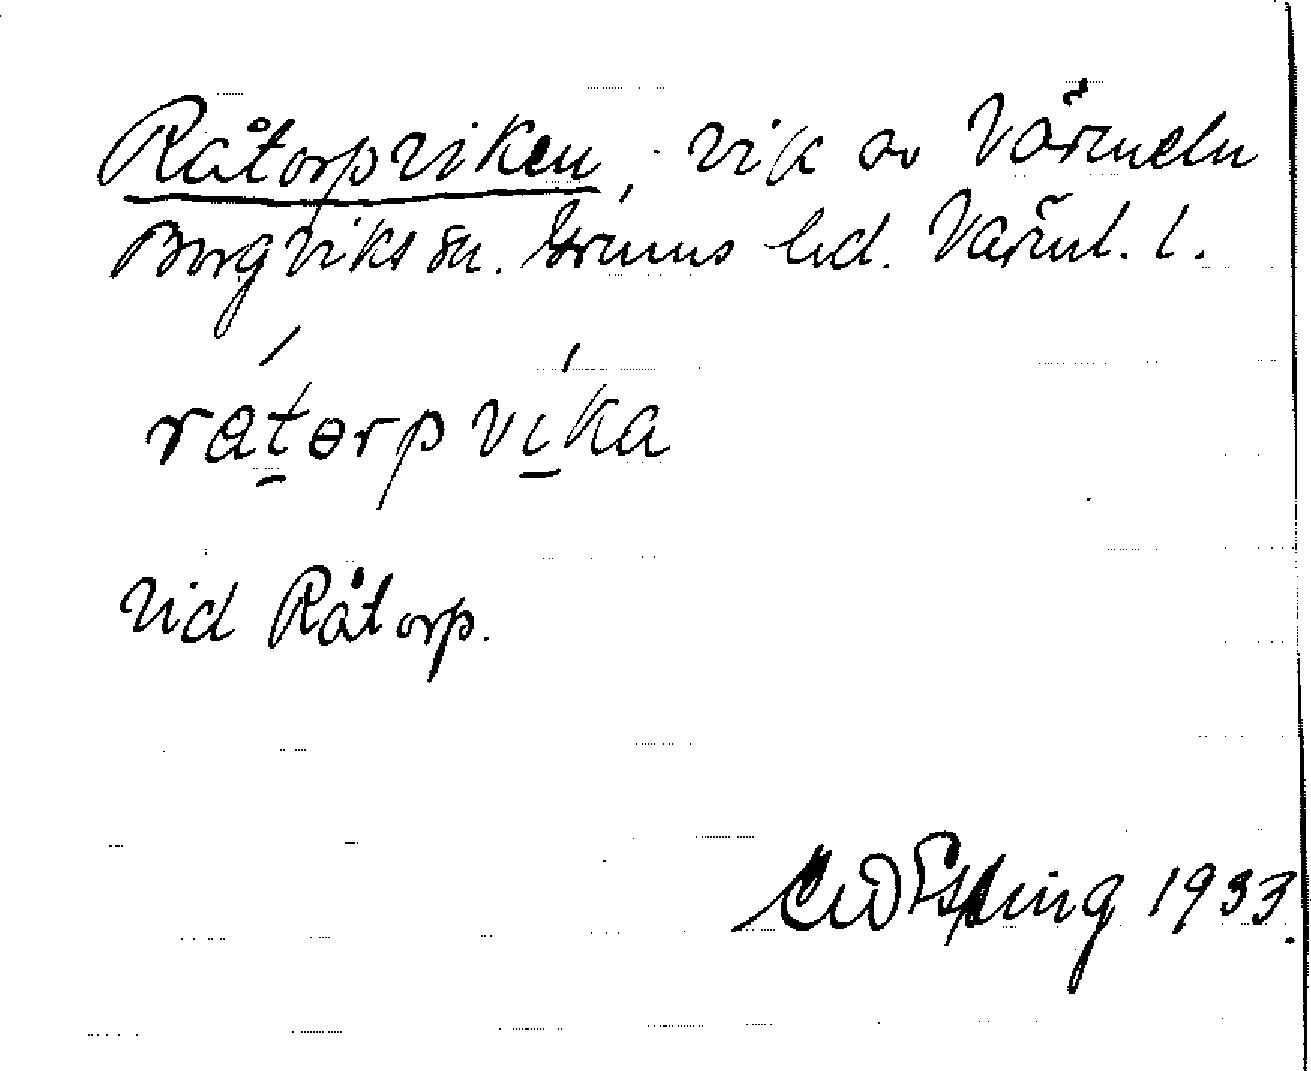 Råtorpviken, vik av Värmeln
Borgviks sn. Grums hd. Värml. l.
rátɵrpvíka
Vid Råtorp.
Espling 1933.